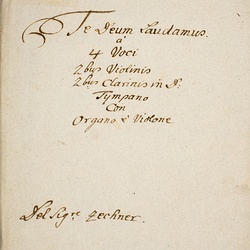 Te Deum Laudamus.
à
4 Voci
2bus Violinis
2bus Clarinis in D.
Tympano
Con
Organo è Violone
Del Sigre Zechner.